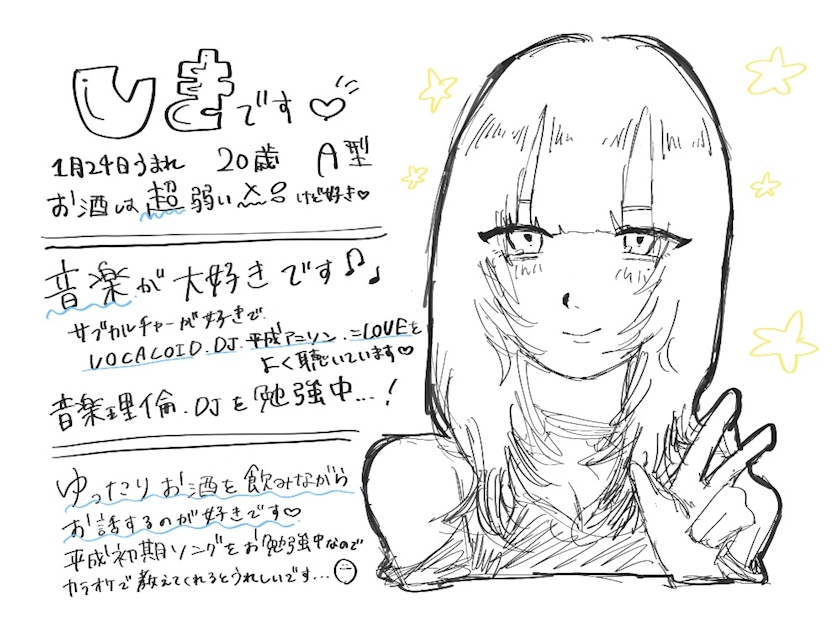 しきです♡
1月24日うまれ 20歳 A型
お酒は超弱いけど好き♡
音楽が大好きです♪♩
サブカルチャーが好きで
VOCALOID.DJ.平成アニソン.=LOVEを
よく聴いています♡
音楽理倫.DJを勉強中...!
ゆったりお酒を飲みながら
お話するのが好きです♡
平成初期ソングをお勉強中なので
カラオケで教えてくれるとうれしいです...